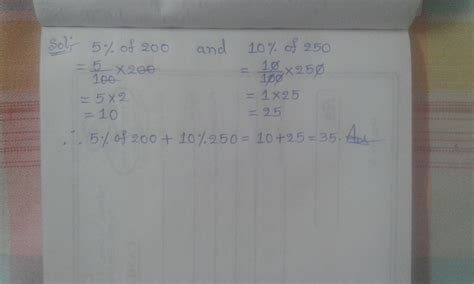 Sol:- 5% of 200 and 10% of 250
= 5/100 × 200 = 10/100 × 250
= 5×2 = 1×25
= 10 = 25
∴ 5% of 200 + 10% 250 = 10+25 = 35. Ans